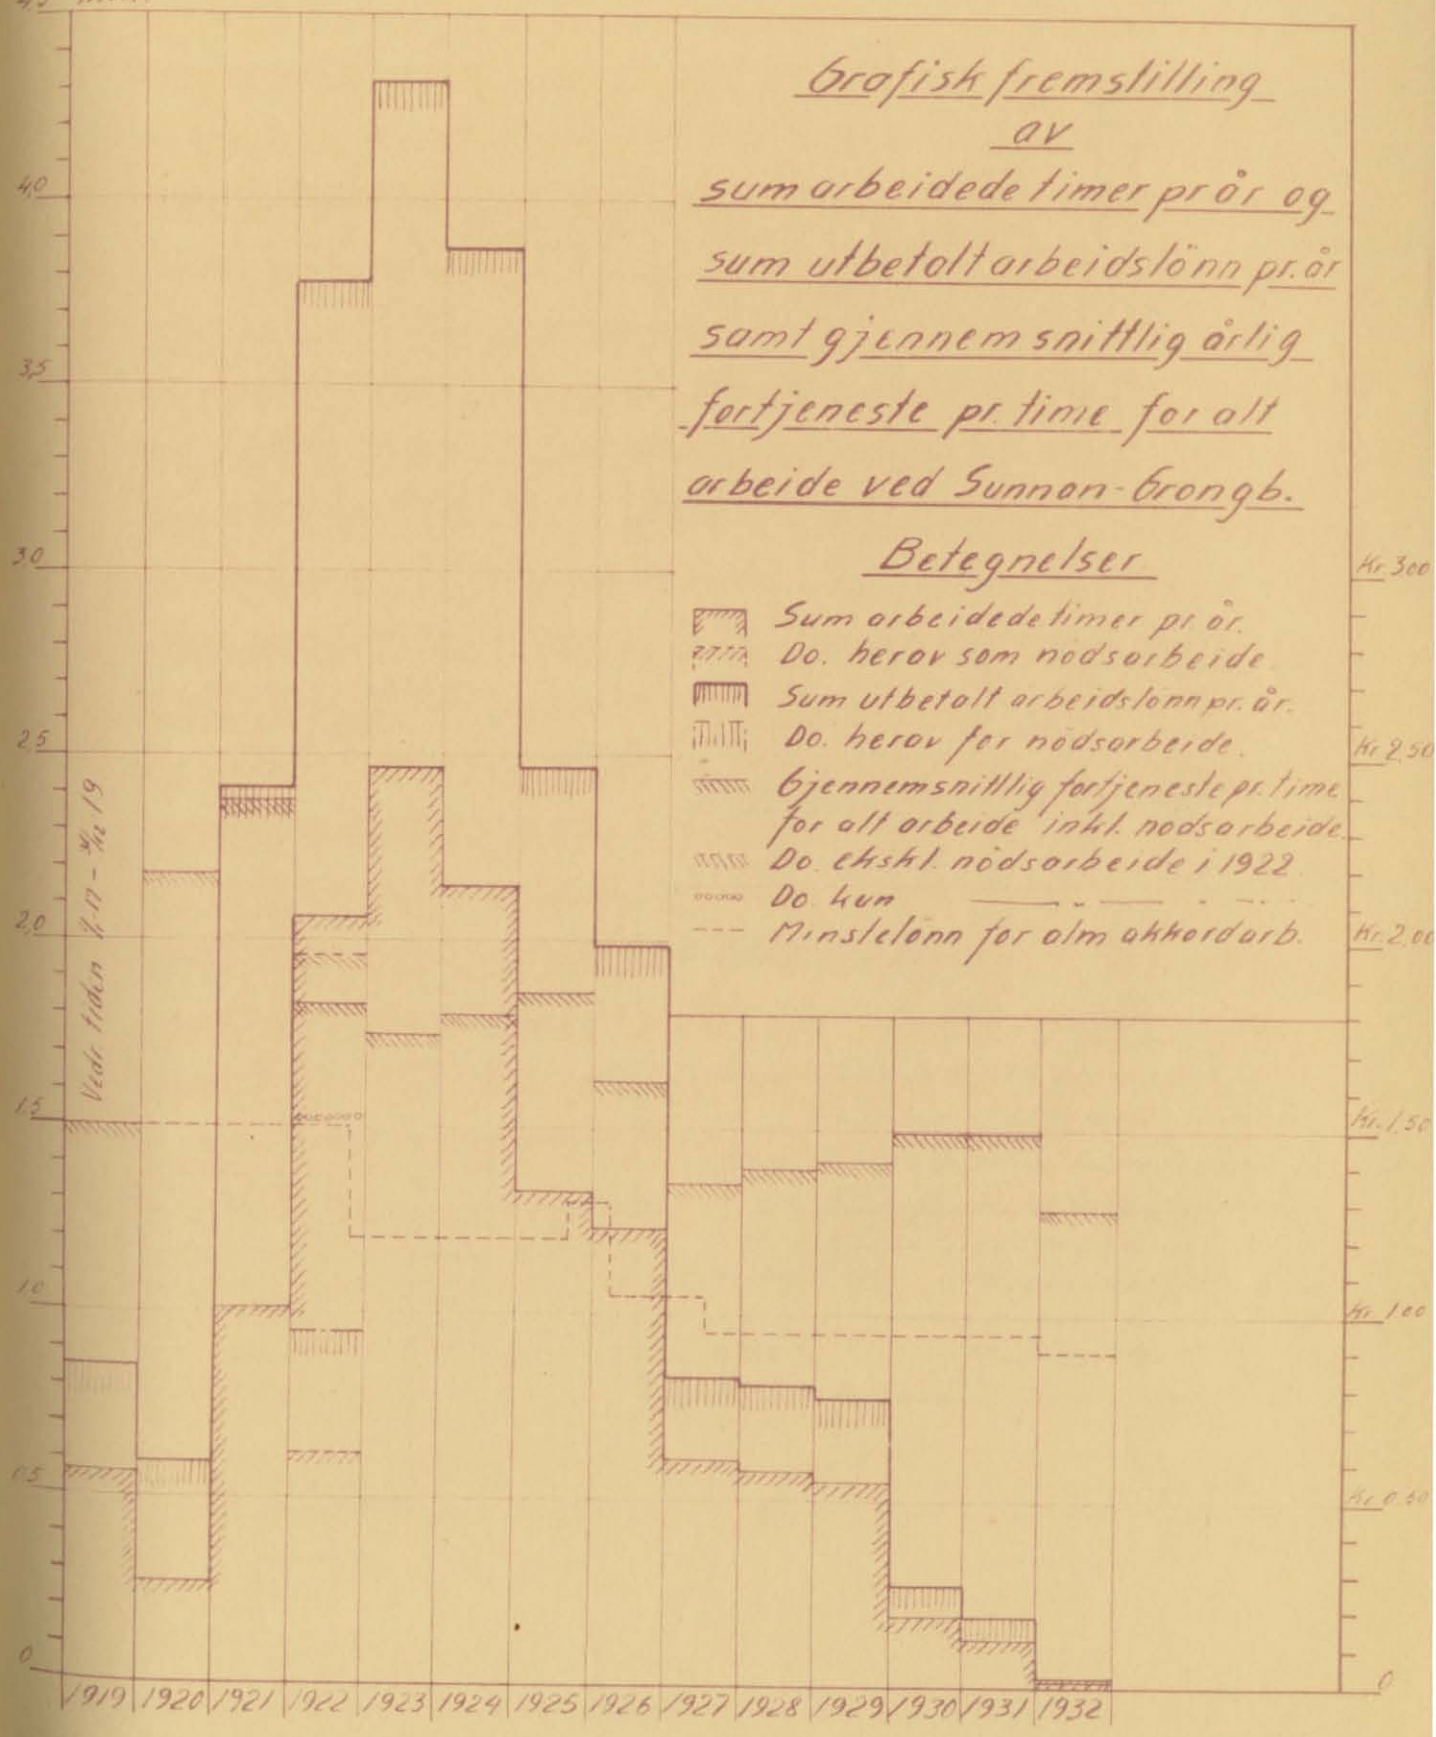 4,5
Grafisk fremstilling
av
sum arbeidede timer pr år og
sum utbetalt arbeidslönn pr. år
samt gjennemsnittlig årlig
fortjeneste pr. time for alt
arbeide ved Sunnan-Grongb.
Betegnelser
Sum arbeidede timer pr. år.
Do. herav som nödsarbeide
Sum utbetalt arbeidslönn pr. år.
Do. herav for nödsarbeide.
Gjennemsnittlig fortjeneste pr. time
for alt arbeide inkl. nödsarbeide.
Do. ekskl. nödsarbeide i 1922
Do. kun — „ — „ —
Minstelönn for alm akkordarb.
4,0
3,5
3,0
2,5
2,0
1,5
1,0
0,5
0
Vedr. tiden 19
Kr. 3,00
Kr. 2,50
Kr. 2,00
Kr. 1,50
Kr. 1,00
Kr. 0,50
0
1919 1920 1921 1922 1923 1924 1925 1926 1927 1928 1929 1930 1931 1932